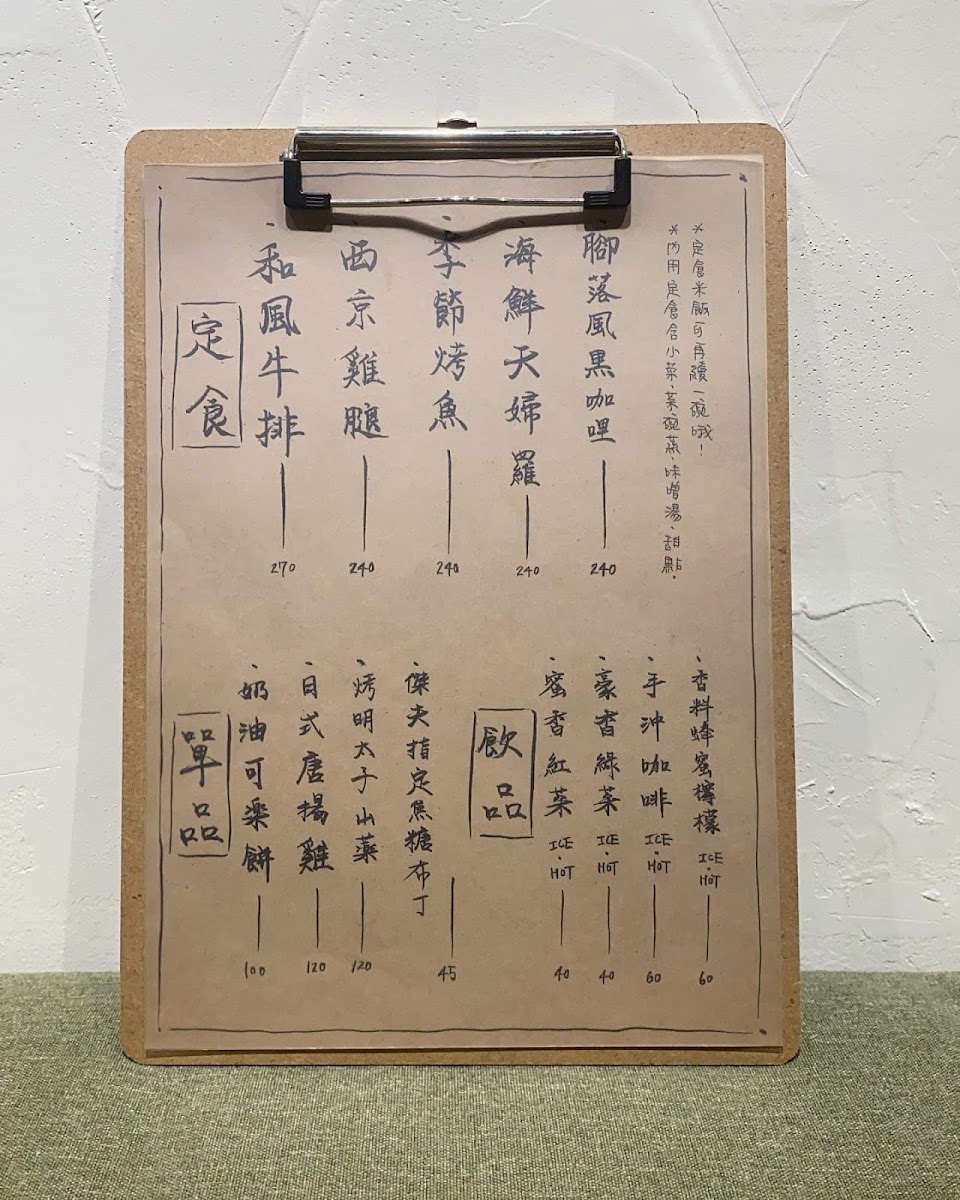 定食
、和風牛排 270
、西京雞腿 240
、季節烤魚 240
、海鮮天婦羅 240
、腳落風黑咖哩 240
*內用定食含小菜、茶碗蒸、味增湯、甜點.
*定食米飯可再續一碗哦!
單品
、奶油可楽餅 100
、日式唐揚雞 120
、烤明太子山薬 120
、傑夫指定焦糖布丁 45
飲品
、蜜香紅茶 ICE・HOT 40
、豪香綠茶 ICE・HOT 40
、手沖咖啡 ICE・HOT 60
、香料蜂蜜檸檬 ICE・HOT 60